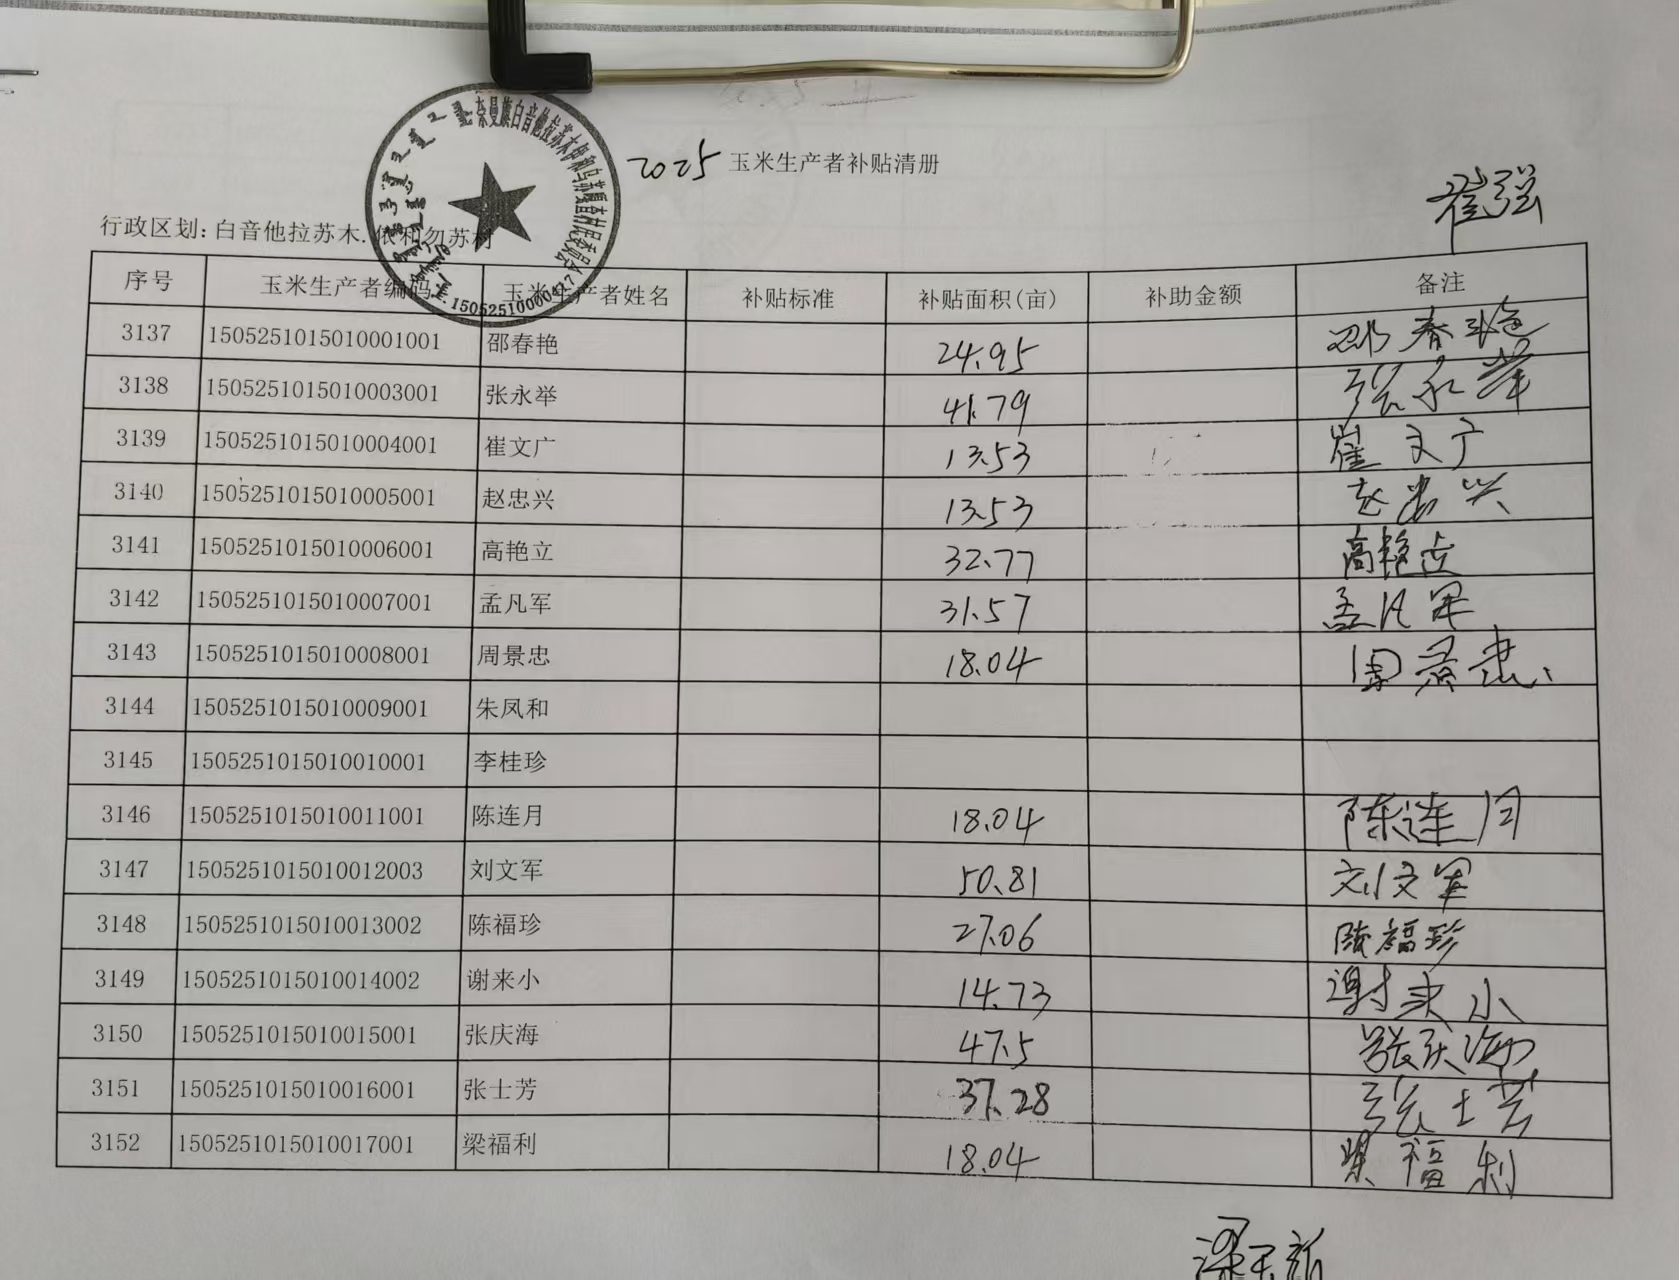 奈曼旗白音他拉苏木伊和乌苏嘎查村民委员会
1505251000047
2025 玉米生产者补贴清册
崔强
行政区划: 白音他拉苏木.依和勿苏村
序号 玉米生产者编码 玉米生产者姓名 补贴标准 补贴面积(亩) 补助金额 备注
3137 1505251015010001001 邵春艳 24.95 邵春艳
3138 1505251015010003001 张永举 41.79 张永举
3139 1505251015010004001 崔文广 13.53 崔文广
3140 1505251015010005001 赵忠兴 13.53 赵忠兴
3141 1505251015010006001 高艳立 32.77 高艳立
3142 1505251015010007001 孟凡军 31.57 孟凡军
3143 1505251015010008001 周景忠 18.04 周景忠
3144 1505251015010009001 朱凤和
3145 1505251015010010001 李桂珍
3146 1505251015010011001 陈连月 18.04 陈连月
3147 1505251015010012003 刘文军 50.81 刘文军
3148 1505251015010013002 陈福珍 27.06 陈福珍
3149 1505251015010014002 谢来小 14.73 谢来小
3150 1505251015010015001 张庆海 47.5 张庆海
3151 1505251015010016001 张士芳 37.28 张士芳
3152 1505251015010017001 梁福利 18.04 梁福利